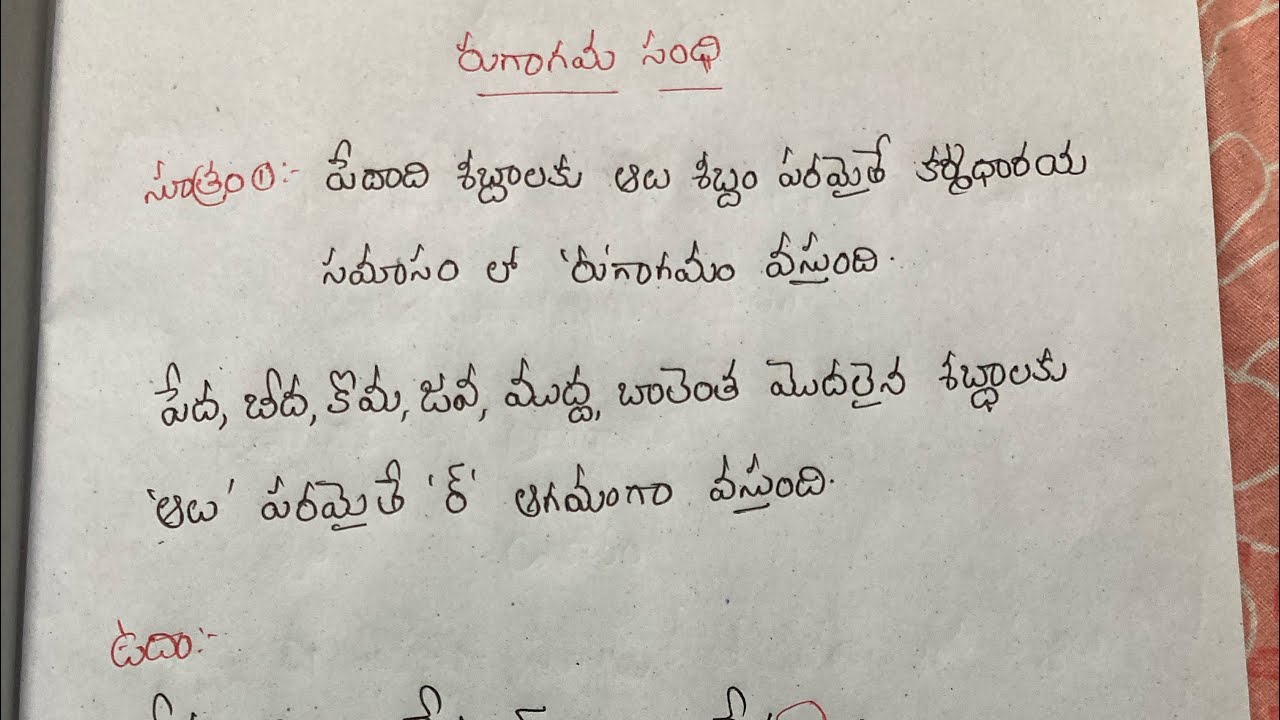 రుగాగమ సంధి
సూత్రం①:- పేదాది శబ్దాలకు ఆలు శబ్దం పరమైతే కర్మధారయ
సమాసం లో 'రు'గాగమం వస్తుంది.
పేద, బీద, కొమ, జవ, ముద్ద, బాలెంత మొదలైన శబ్ధాలకు
'ఆలు' పరమైతే 'ర్' ఆగమంగా వస్తుంది.
ఉదా:-